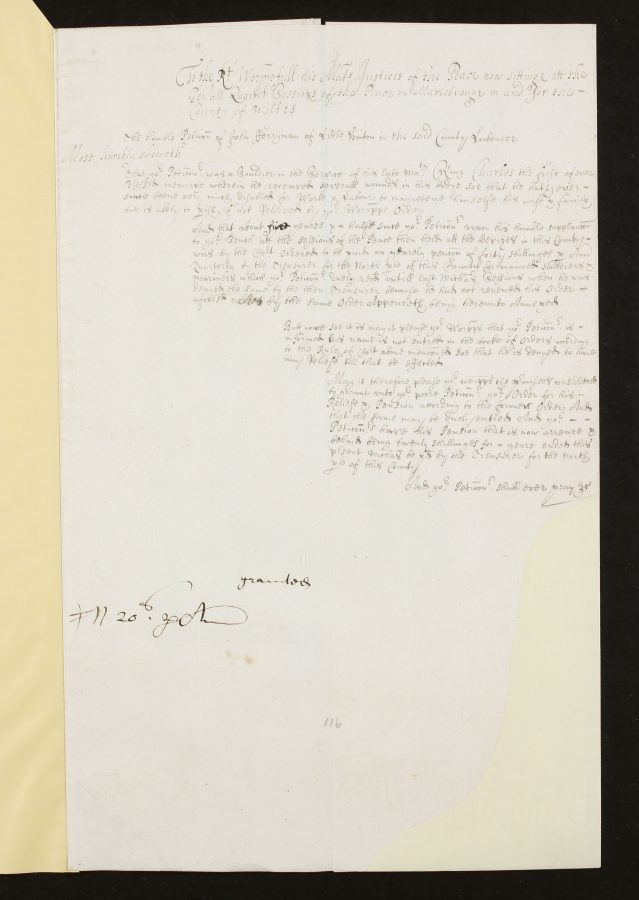 To the Rt Worpfull his Mats Justices of the Peace now sitting att the
Genrall Quarter Sessions of the Peace in Marlebrough in and for the
County of Wiltes
The humble Peticon of John Herryman of Little in the said County Labourer
Most humbly sheweth
That yor Peticonr was a Souldier in the Service of his late Matie King Charles the first of ever
Blessed memorie wherein he received severall wounds in his bodye soe that he hath ever
since beene very much disabled for Worke & Labour to mainteine himselfe his wife & family
and is likely to if not Releived by yor Worpps Order
And that about five yeares & a halfe since yor Peticonr uppon his humble supplicacon
to yor Bench att the Sessions of the Peace then held att the Devizes in this County
was by the Court Ordered to be paid an yearely pencion of forty shillinges p Ann
Quarterly by the Treasurer for the North pte of this County for maimed souldiers &
marriners which yor Peticonr duely recd untill last Sessions when he was
denyed the same by the then Treasurer because he had not renewed his Order
aforesd As by the same Order Appeareth being hereunto Annexed
But nowe soe it is may it please yor Worpps that yor Peticonr is
informed his name is not entred in the booke of orders according
to the Rule of Cort above mencioned soe that he is denyed to have
any Releife by that
May it therefore please yor worpps the pmisses considered
to grant unto yor poore Peticonr yor Order for his
Releife & Pencion according to the former Order And
that the same may be duely entred And yor
Peticonr have his Pencion that is now arreare &
behind being twenty shillinges for a yeare ended this
psent be pd by the Treasurer for the North
pte of this County
And yor Peticonr shall ever pray &c
granted
20s p An
116